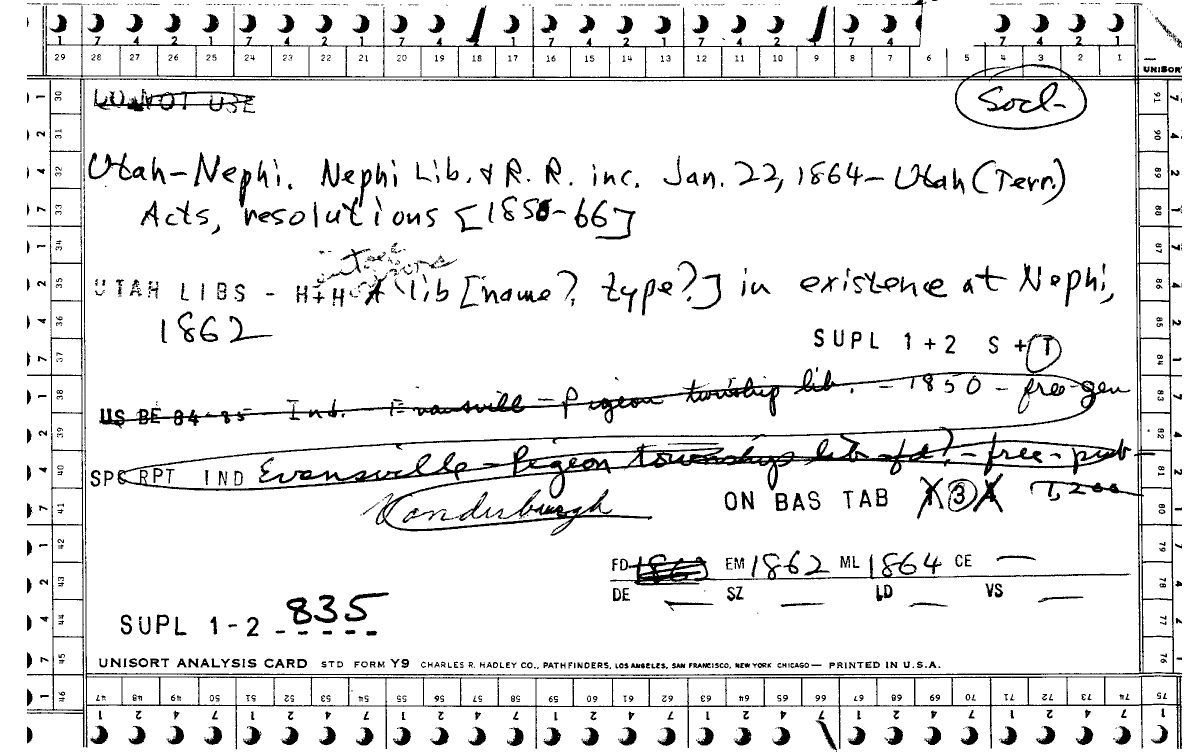 7 4 2 1 7 4 2 1 7 4 1 7 4 2 1 7 4 2 7 4 7 4 2 1
29 28 27 26 25 24 23 22 21 20 19 18 17 16 15 14 13 12 11 10 9 8 7 6 5 4 3 2 1
UNISORT
DO NOT USE
Socl-
Utah-Nephi. Nephi Lib. & R. R. inc. Jan. 22, 1864-Utah (Terr.)
Acts, resolutions [1850-66]
UTAH LIBS - H+H- A lib [name?, type?] in existence at Nephi,
1862
SUPL 1+2 S+T
US BE 84-85 Ind. Evansville-Pigeon township lib. - 1850 - free-gen
SPC RPT IND Evansville-Pigeon township lib-fd?-free-pub-
Vanderburgh
ON BAS TAB 1 3 4 1,200
FD 1863 EM 1862 ML 1864 CE —
DE — SZ — LD — VS —
SUPL 1-2 835
UNISORT ANALYSIS CARD STD FORM Y9 CHARLES R. HADLEY CO., PATHFINDERS, LOS ANGELES, SAN FRANCISCO, NEW YORK CHICAGO — PRINTED IN U.S.A.
30 31 32 33 34 35 36 37 38 39 40 41 42 43 44 45 46
91 90 89 88 87 86 85 84 83 82 81 80 79 78 77 76 75
47 48 49 50 51 52 53 54 55 56 57 58 59 60 61 62 63 64 65 66 67 68 69 70 71 72 73 74